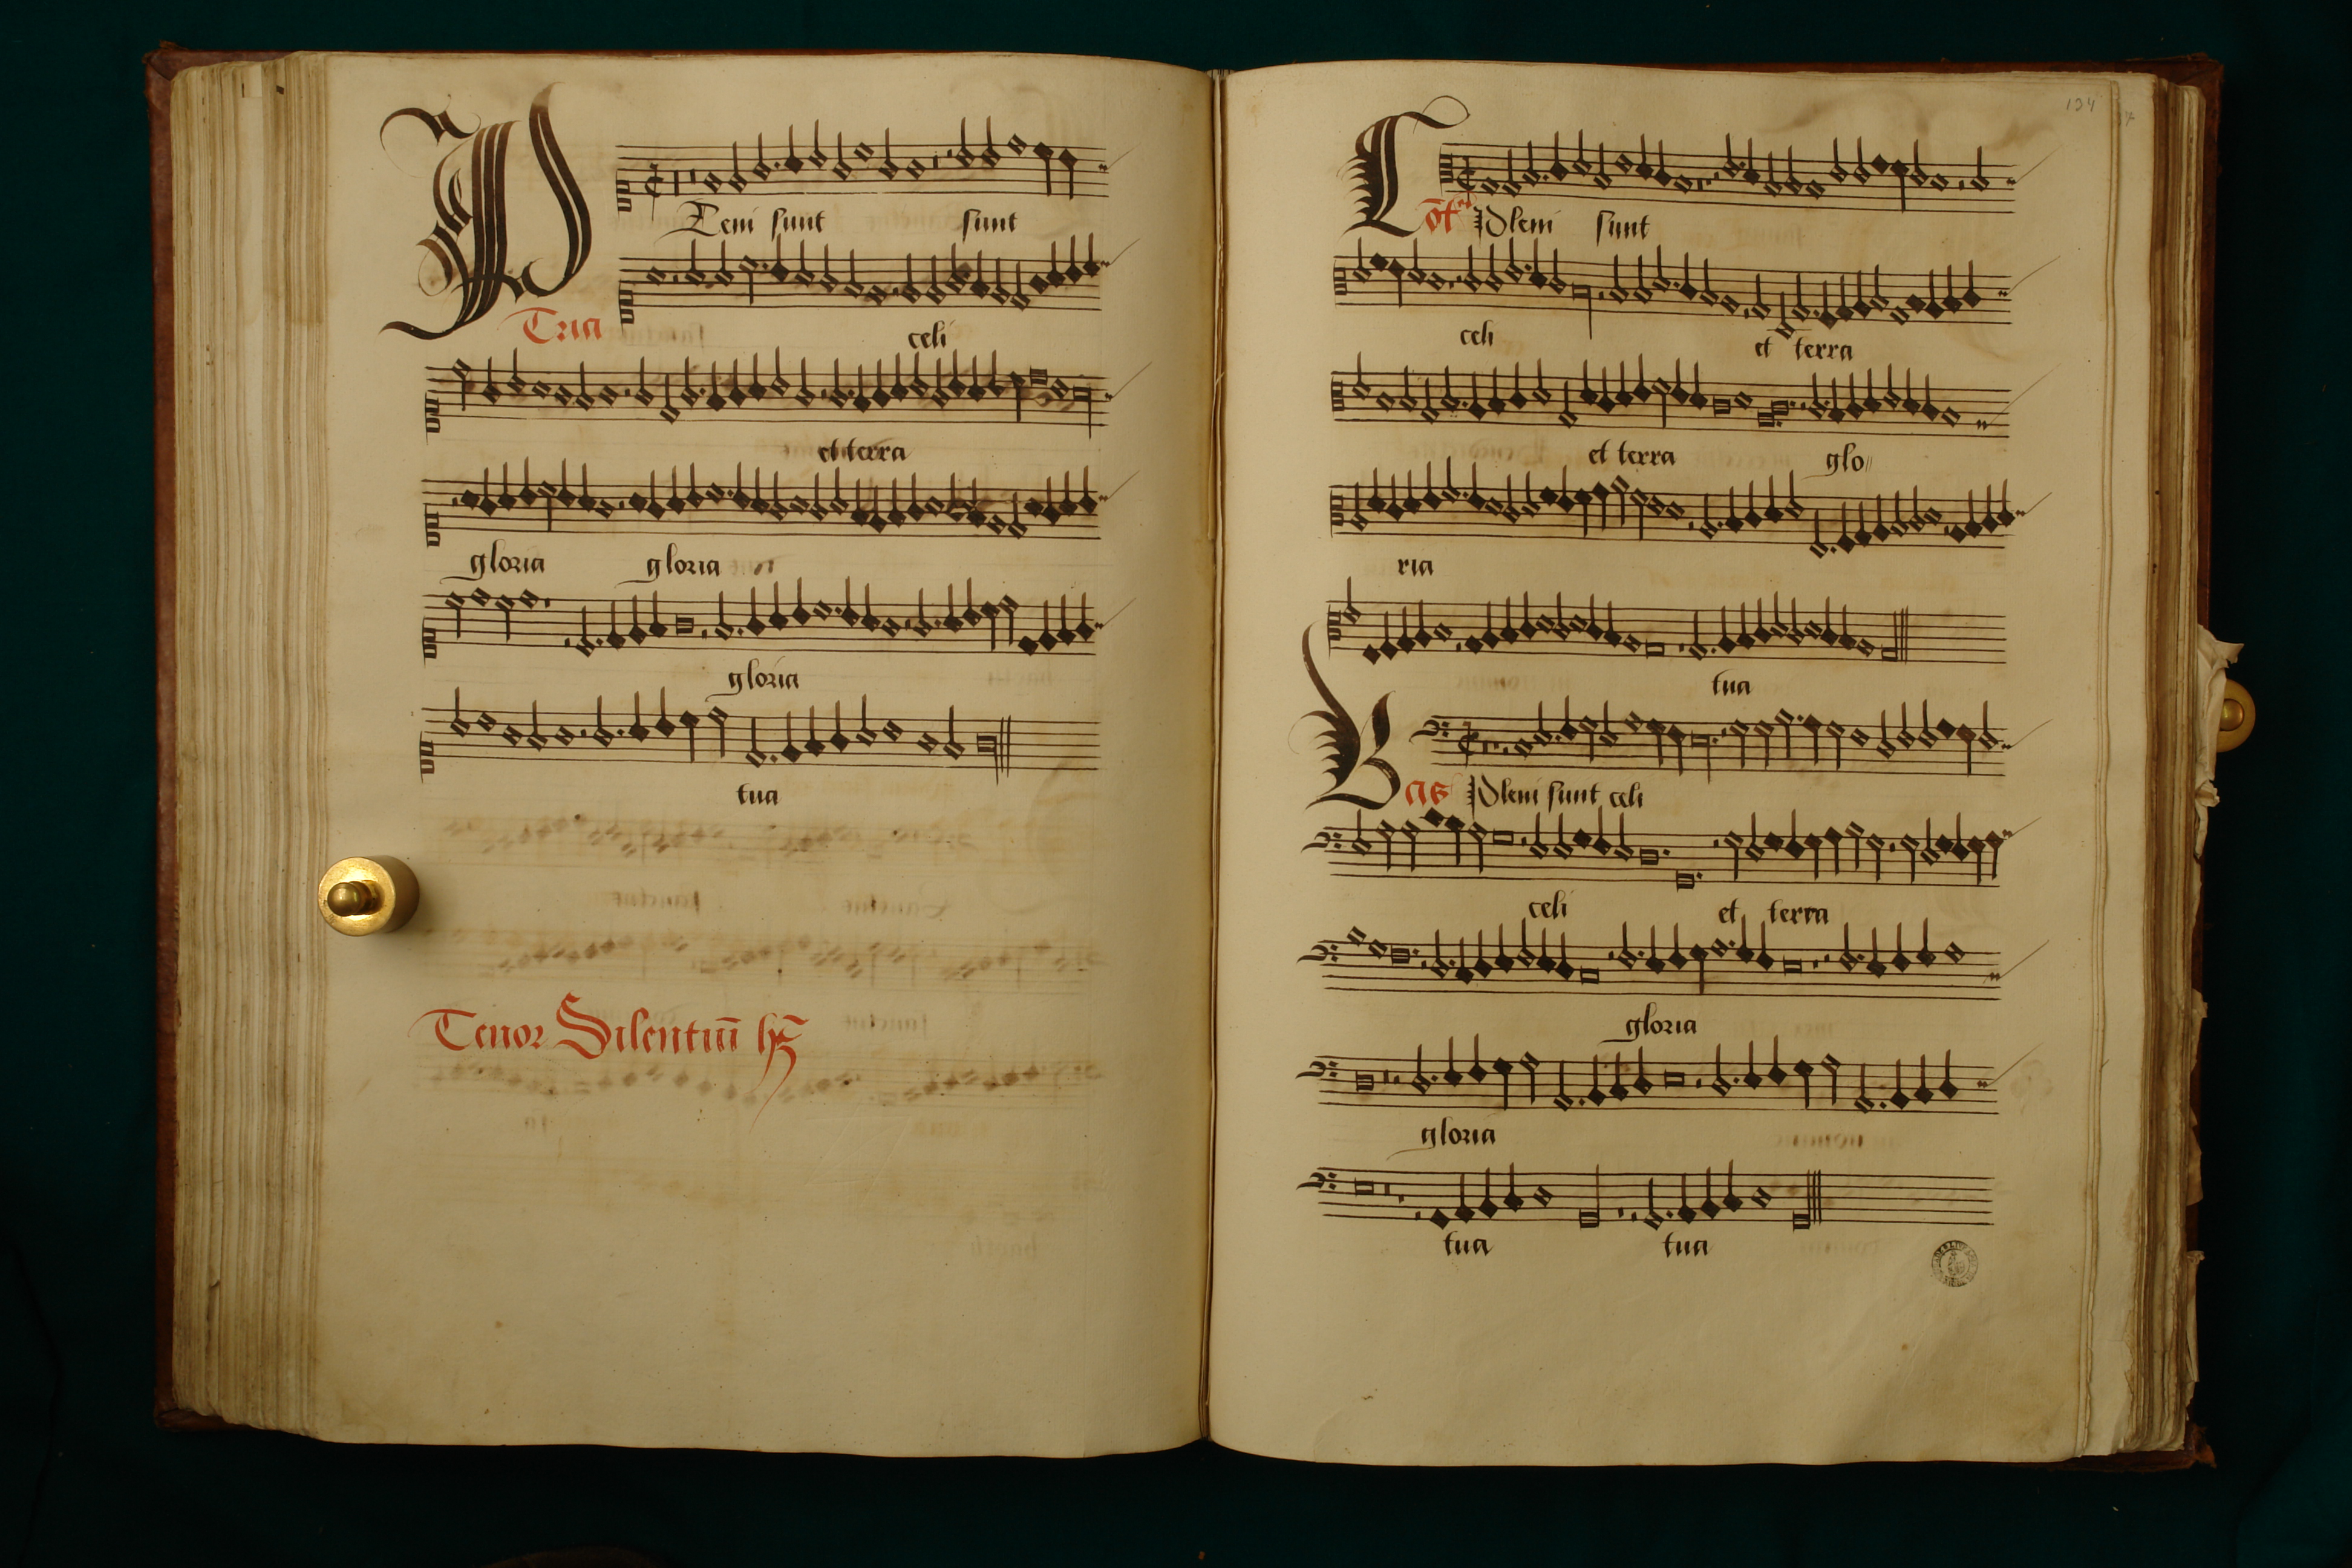 Pleni sunt sunt
Tria
celi
et terra
gloria gloria
gloria
tua
Tenor Silentiū hꝫ
124
Cōt
Pleni sunt
celi et terra
et terra glo
ria
tua
Bas Pleni sunt celi
celi et terra
gloria
gloria
tua tua